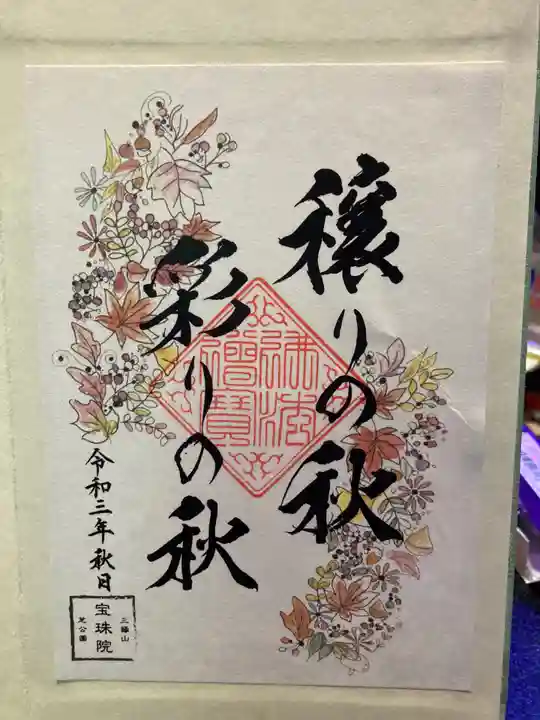 穣りの秋
彩りの秋
令和三年秋日
三緣山
宝珠院
芝公園
佛法僧寳